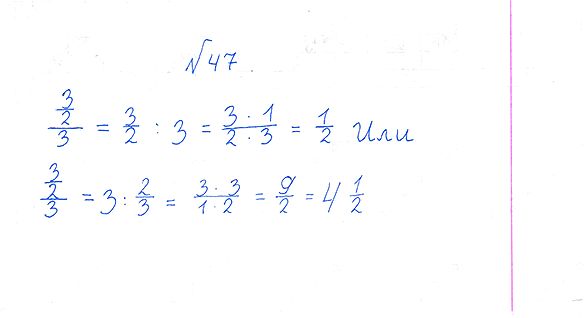 √47.
3/2/3 = 3/2 : 3 = 3·1/2·3 = 1/2 Или
3/2/3 = 3 : 2/3 = 3·3/1·2 = 9/2 = 4 1/2